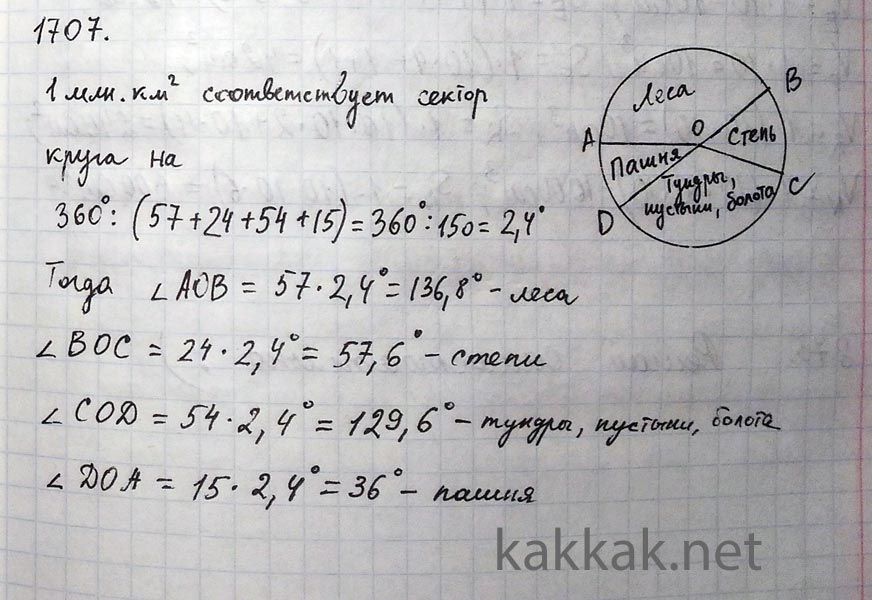 1707.
1 млн. км² соответствует сектор
круга на
360° : (57+24+54+15) = 360° : 150 = 2,4°
Тогда ∠AOB = 57 · 2,4° = 136,8° – леса
∠BOC = 24 · 2,4° = 57,6° – степи
∠COD = 54 · 2,4° = 129,6° – тундры, пустыни, болота
∠DOA = 15 · 2,4° = 36° – пашня
Леса
B
A
O
Степь
Пашня
Тундры,
пустыни, болота
C
D
kakkak.net